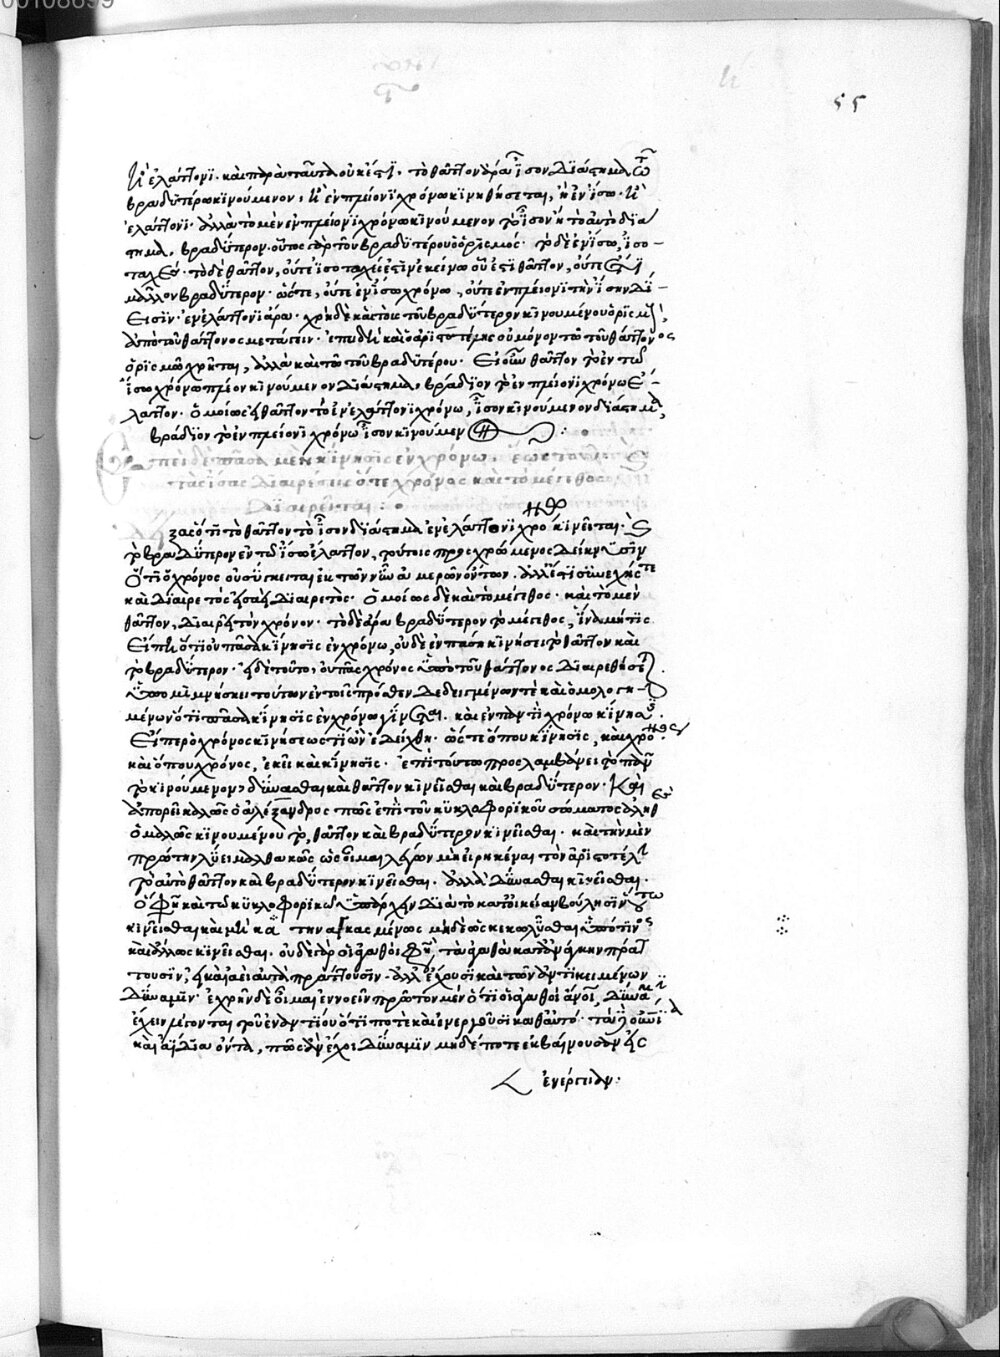 55
ἢ ἐλάττονι. καὶ παρὰ ταῦτα οὐκ ἔστι. τὸ θᾶττον ἄρα ἴσον διάστημα τῷ
βραδυτέρῳ κινούμενον, ἢ ἐν πλείονι χρόνῳ κινηθήσεται, ἢ ἐν ἴσῳ. ἢ
ἐλάττονι. ἀλλὰ τὸ μὲν ἐν πλείονι χρόνῳ κινούμενον τὸ ἴσον ἢ τὸ αὐτὸ διά
στημα, βραδύτερον. οὗτος γὰρ τοῦ βραδυτέρου ὁ ὁρισμός. τὸ δὲ ἐν ἴσῳ, ἰσο-
ταχές. τὸ δὲ θᾶττον, οὔτε ἰσοταχές ἐστιν ἐκείνῳ οὗ ἐστι θᾶττον, οὔτε
μᾶλλον βραδύτερον. ὥστε, οὔτε ἐν ἴσῳ χρόνῳ, οὔτε ἐν πλείονι τὴν ἴσην δί-
εισιν. ἐν ἐλάττονι ἄρα. χρὴ δὲ καὶ τοὺς τοῦ βραδύτερον κινουμένου ὁρισμοὺς,
ἀπὸ τοῦ θάττονος μετάγειν. ἐπειδὴ καὶ ὁ ἀριστοτέλης οὐ μόνον τῷ τοῦ θάττονος
ὁρισμῷ χρῆται, ἀλλὰ καὶ τῷ τοῦ βραδυτέρου. εἰ οὖν θᾶττον τὸ ἐν τῷ
ἴσῳ χρόνῳ πλέον κινούμενον διάστημα, βράδιον τὸ ἐν πλείονι χρόνῳ ἔ-
λαττον. ὁμοίως εἰ θᾶττον τὸ ἐν ἐλάττονι χρόνῳ, ἴσον κινούμενον διάστημα,
βράδιον τὸ ἐν πλείονι χρόνῳ ἴσον κινούμενον:
Ἐπεὶ δὲ πᾶσα μὲν κίνησις ἐν χρόνῳ. ἕως τοῦ
τὰς ἴσας διαιρέσεις ὅ τε χρόνος καὶ τὸ μέγεθος
διαιρεῖται:
Δείξας ὅτι τὸ θᾶττον τὸ ἴσον διάστημα ἐν ἐλάττονι χρόνῳ κινεῖται. καὶ
τὸ βραδύτερον ἐν τῷ ἴσῳ ἔλαττον, τούτοις προσχρώμενος δείκνυσιν
ὅτι ὁ χρόνος οὐ σύγκειται ἐκ τῶν νῦν ἀμερῶν ὄντων. ἀλλ' ἔστι συνεχής τε
καὶ διαιρετὸς εἰς ἀεὶ διαιρετός. ὁμοίως δὲ καὶ τὸ μέγεθος. καὶ τὸ μὲν
θᾶττον, διαιρεῖ τὸν χρόνον. τὸ δὲ ἄρα βραδύτερον τὸ μέγεθος, ἵνα μή τις
εἴπῃ ὅτι οὐ πᾶσα κίνησις ἐν χρόνῳ, οὐδὲ ἐν πάσῃ κινήσει τὸ θᾶττον καὶ
τὸ βραδύτερον. εἰ δὲ τοῦτο, οὐ πᾶς χρόνος ὑπὸ τοῦ θάττονος διαιρεθήσεται.
ὑπομιμνήσκει τούτων ἐν τοῖς πρόσθεν δεδειγμένων τὲ καὶ ὁμολογη-
μένων ὅτι πᾶσα κίνησις ἐν χρόνῳ γίνεται. καὶ ἐν παντὶ χρόνῳ κίνησις.
εἴπερ ὁ χρόνος κινήσεώς τι ὢν ἐδείχθη. ὥστε ὅπου κίνησις, καὶ χρόνος.
καὶ ὅπου χρόνος, ἐκεῖ καὶ κίνησις. ἐπὶ τούτῳ προσλαμβάνει τὸ πᾶν
τὸ κινούμενον, δύνασθαι καὶ θᾶττον κινεῖσθαι καὶ βραδύτερον. καὶ
ἀπορεῖ καλῶς ὁ ἀλέξανδρος πῶς ἐπὶ τοῦ κυκλοφορικοῦ σώματος ἀληθὲς
ὁμαλῶς κινουμένου τὸ, θᾶττον καὶ βραδύτερον κινεῖσθαι. καὶ τὴν μὲν
πρώτην λύει μαλθακῶς ὡς οἶμαι λέγων μὴ εἰρηκέναι τὸν ἀριστοτέλη
τὸ αὐτὸ θᾶττον καὶ βραδύτερον κινεῖσθαι. ἀλλὰ δύνασθαι κινεῖσθαι.
ὅ φησι καὶ τῷ κυκλοφορικῷ ὑπάρχειν διὰ τὸ κατ' οἰκείαν βούλησιν οὕτω
κινεῖσθαι καὶ μὴ κατηναγκασμένως μηδὲ ὡς κεκωλῦσθαι ὑπό τινος
καὶ ἄλλως κινεῖσθαι. οὐδὲ γὰρ οἱ ἀγαθοί φησι, τὰ ἀγαθὰ κατ' ἀνάγκην πράτ
τουσιν, εἰ καὶ ἀεὶ αὐτὰ πράττουσιν. ἀλλ' ἔχουσι καὶ τῶν ἀντικειμένων
δύναμιν. ἐχρῆν δὲ οἶμαι ἐννοεῖν πρῶτον μὲν ὅτι οἱ ἀγαθοὶ ἄνθρωποι, δύναμιν
ἔχειν λέγονται τοῦ ἐναντίου ὅτι ποτὲ καὶ ἐνεργοῦσι κατ' αὐτό. τὰ δὲ οὐράνια
καὶ ἀΐδια ὄντα, πῶς ἂν ἔχοι δύναμιν μηδέποτε ἐκβαίνουσαν εἰς
ἐνέργειαν: